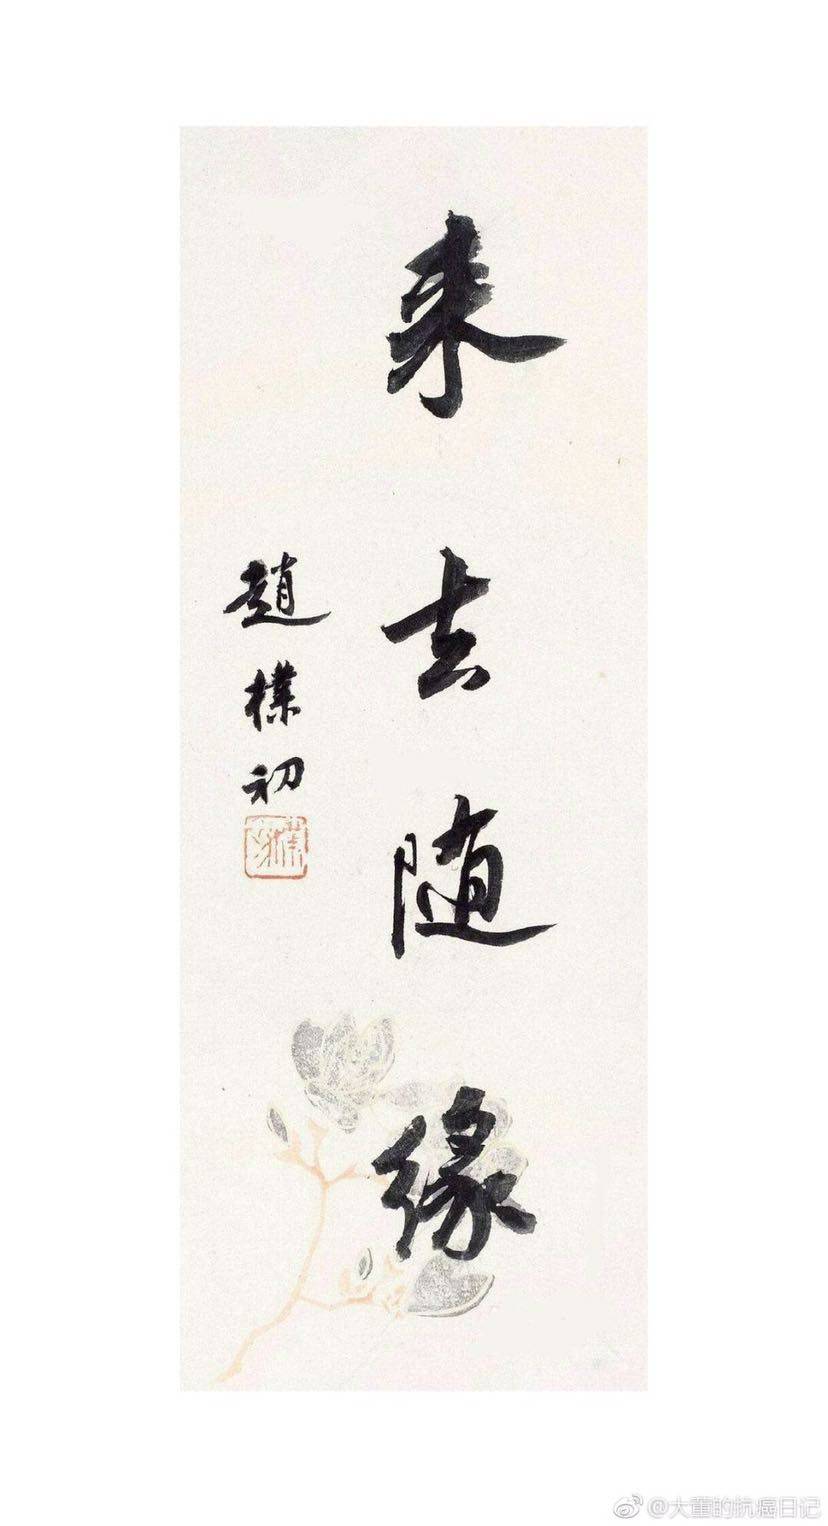 来去随缘
趙樸初
@大董的抗癌日记